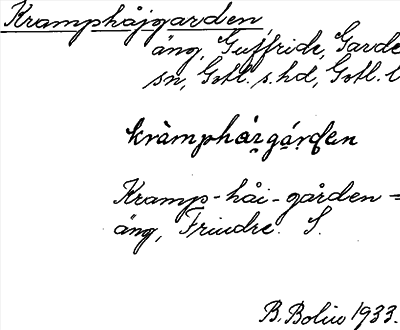 Kramphåjgarden
äng, Guffride, Garde
sn, Gotl. s. hd, Gotl. l
kràmphá̱i̱gá̱rđen
Kramp-håi-gården =
äng, Friudre. S.
B. Bolin 1933.